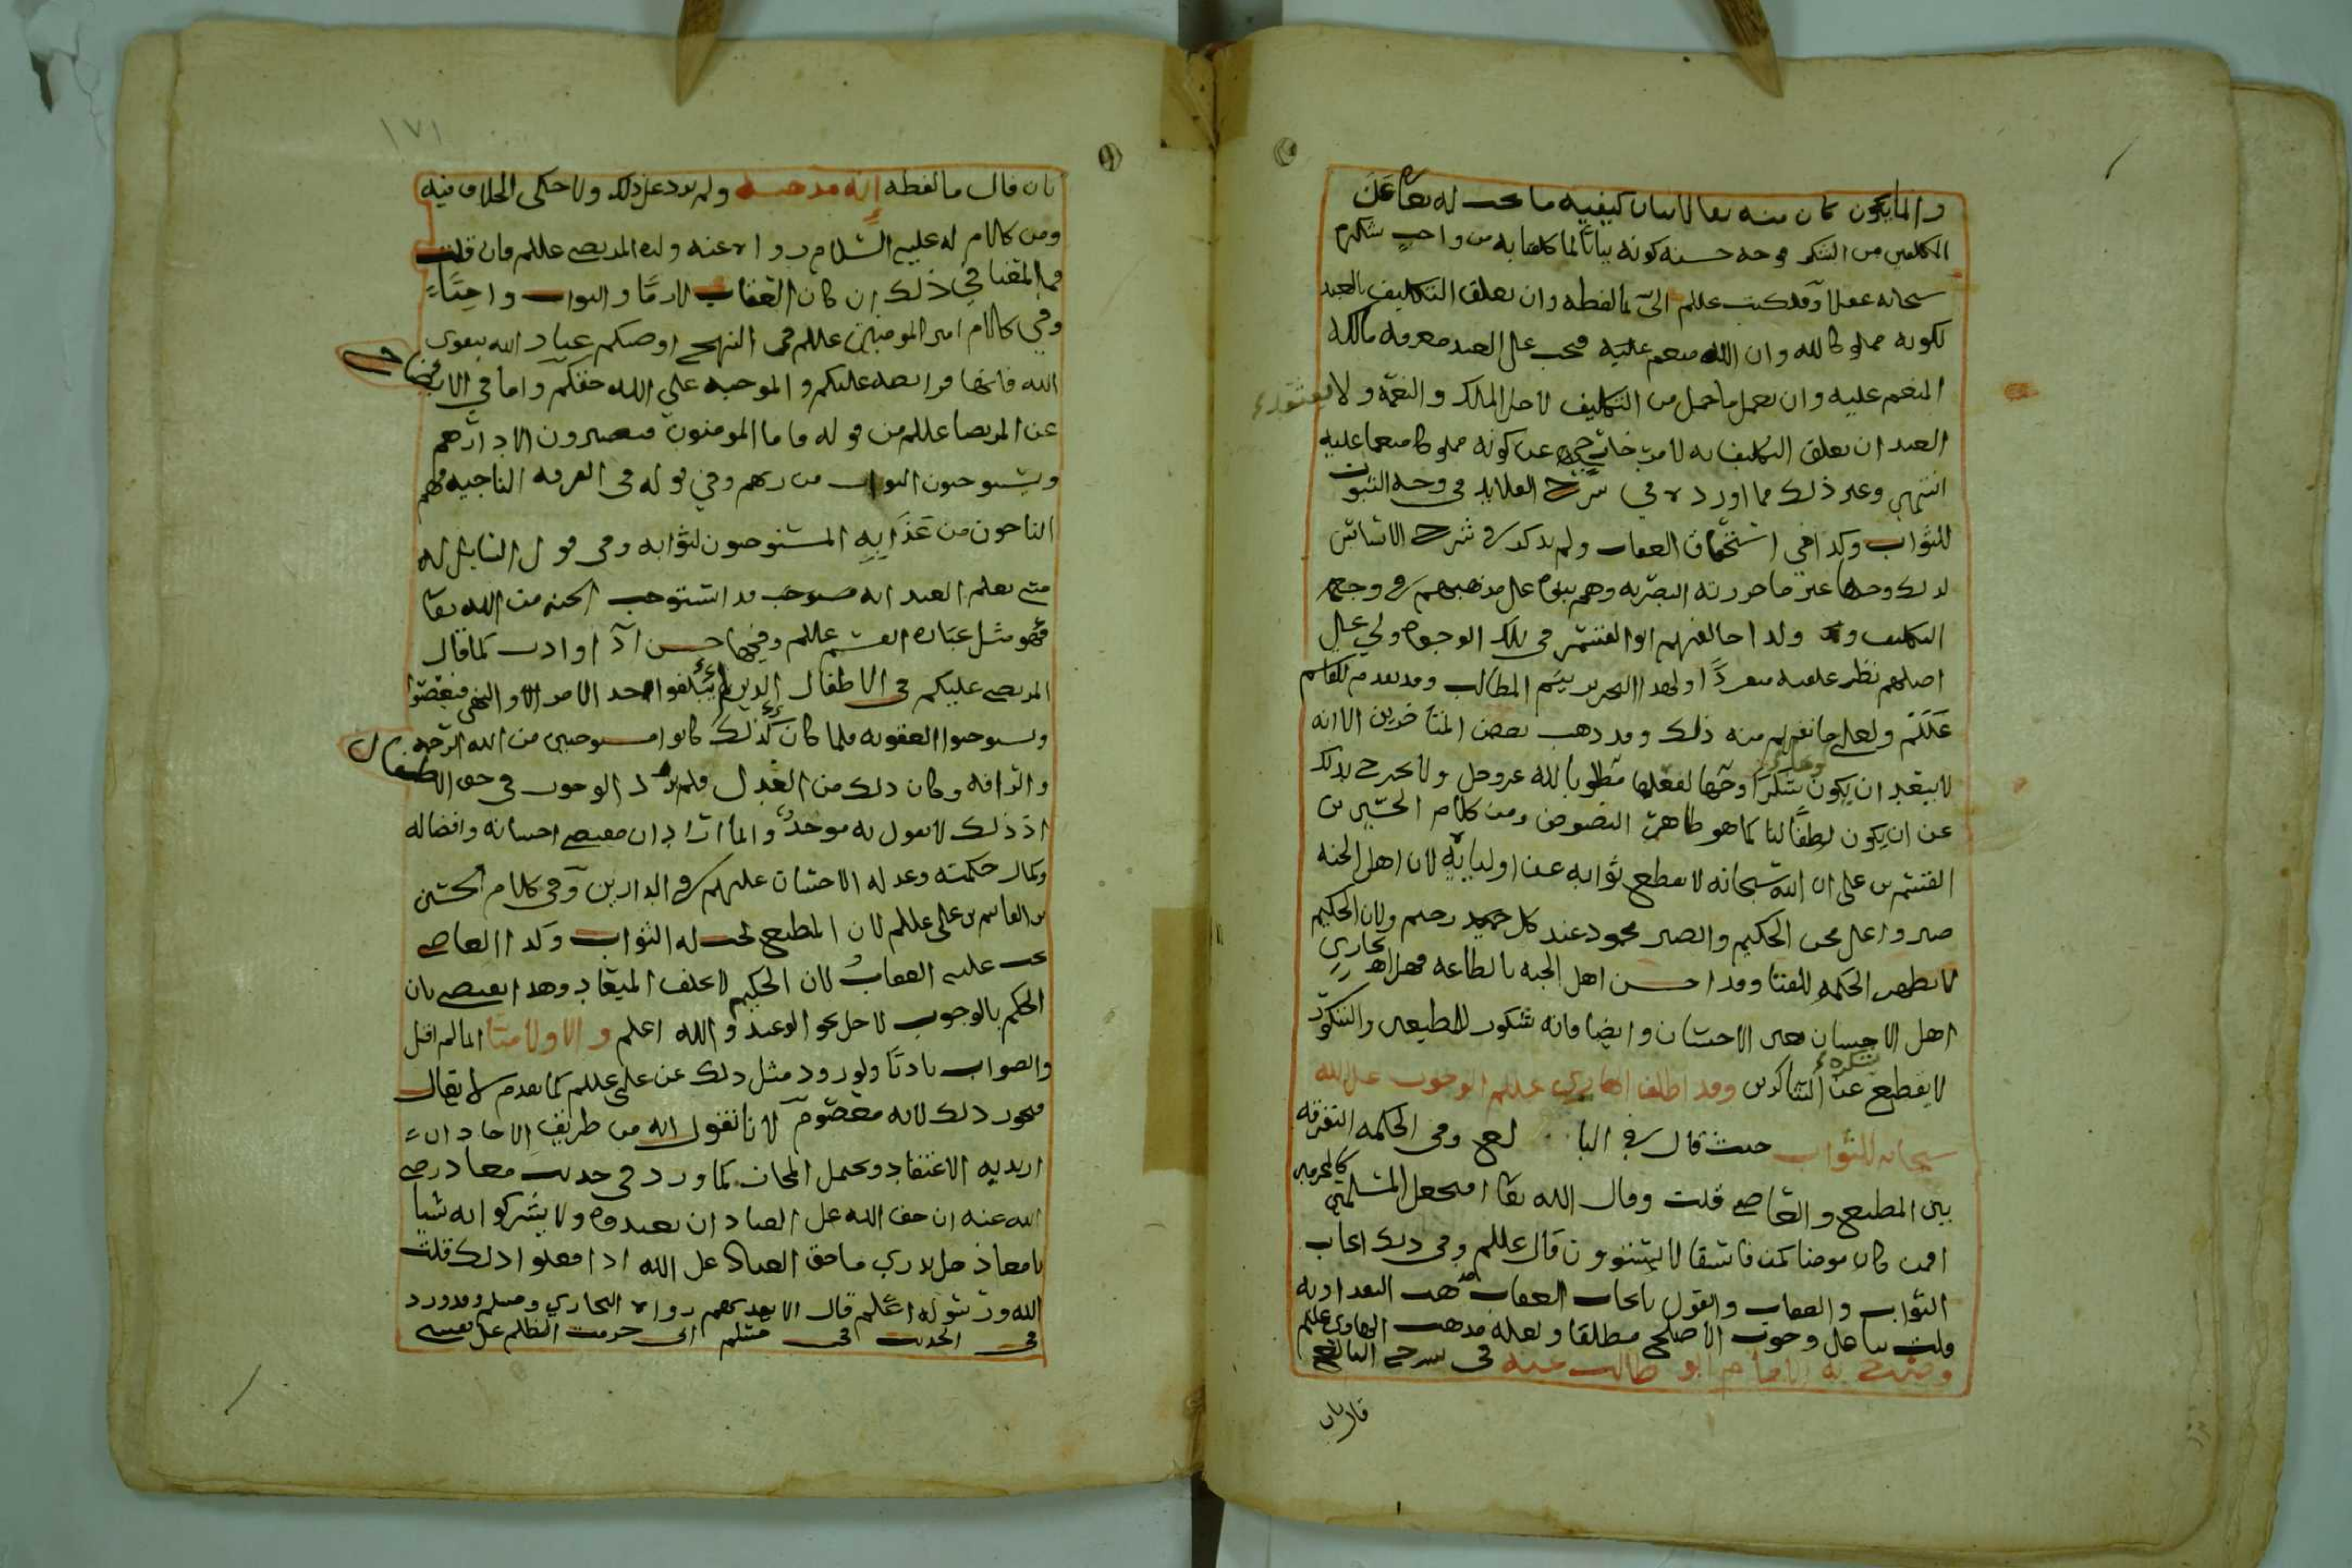 وانما يكون كان منه تعالى لبيان كيفيه ما يجب له تعا على
المكلفين من الشكر فوجه حسنه كونه بيانًا لما كلفنا به من واجب شكره
سبحانه عقلا وقد كتب عللم الي بما لفظه وان تعلق التكليف بالعبد
لكونه مملوكا لله وان الله منعم عليه فيجب على العبد معرفه مالكه
المنعم عليه وان يعمل ما حمل من التكليف لاجل الملك والنعمة ولا يعتقد
العبد ان تعلق التكليف به لامر خارجي عن كونه مملوكا منعما عليه
انتهى وغير ذلك مما اورده في شرح القلايد في وجه الثبوت
للثواب وكذا في استحقاق العقاب ولم يذكر في شرح الاساس
لذلك وجها غير ما حررته البصريه وهم بنوه على مذهبهم في وجه
التكليف ولذا خالفهم ابو القسم في تلك الوجوه ولي على
اصلهم نظر علقته مفردًا ولهذا التحرير يتم المطالب وقد تقدم للقاسم
عللم ولعلي ما يفهم منه ذلك وقد ذهب بعض المتأخرين الا انه
لا يبعد ان يكون شكرا وجها لفعلها مطلوبا لله عز وجل ولا يخرج بذلك
عن ان يكون لطفًا لنا كما هو ظاهر النصوص ومن كلام الحسين بن
القسم بن علي ان الله سبحانه لا يقطع ثوابه عن اوليايه لان اهل الجنه
صبروا على محن الحكيم والصبر محمود عند كل حميد رحيم ولان الحكيم
لا يظهر الحكمه للفنا وقد احسن اهل الجنه بالطاعه فهل يجازي
اهل الاحسان بغير الاحسان وايضا فانه شكور للمطيعين والشكور
لا يقطع شكره عن الشاكرين وقد اطلق الهادي عللم الوجوب على الله
سبحانه للثواب حيث قال في البالغ وفي الحكمه التفرقه
بين المطيع والعاصي قلت وقال الله تعا افنجعل المسلمين كالمجرمين
افمن كان مومنا كمن فاسقا لا يستوون قال عللم وفي ذلك ايجاب
الثواب والعقاب والقول بايجاب العقاب مذهب البغداديه
قلت بنا على وجوب الاصلح مطلقا ولعله مذهب الهادي عللم
وصرح به الامام ابو طالب عنه في شرح البالغ
قال بان
١٧١
بان قال ما لفظه انه مذهبه ولم يرد على ذلك ولا حكى الخلاف فيه
ومن كلام له عليه السلام رواه عنه ولده المرتضى عللم فان قلت
فما المعنا في ذلك ان كان العقاب لازمًا والثواب واجبًا
وفي كلام امير المومنين عللم في النهج اوصيكم عباد الله بتقوى
الله فانها فرايضه عليكم والموجبه على الله حقكم واما في الايضاح
عن المرتضا عللم من قوله فاما المومنون فيصيرون الا دارهم
ويستوجبون الثواب من ربهم وفي قوله في الفرقه الناجيه فهم
الناجون من عذابه المستوجبون لثوابه وفي قول السايل له
متى يعلم العبد انه مستوجب قد استوجب الجنه من الله تعا
فهو مثل عباره القسم عللم وفيها حسن آداب كما قال
المرتضى عليكم في الاطفال الذين لم يبلغوا حد الامر والنهي فيعصوا
ويستوجبوا العقوبه فلما كان كذلك كانوا مستوجبين من الله الرحمه
والرافه وكان ذلك من العدل فلم يرد الوجوب في حق الاطفال
اذ ذلك لا يقول به موحد وانما اراد ان مقتضى احسانه وافضاله
وكمال حكمته وعدله الاحسان عليهم في الدارين وفي كلام الحسين
بن القاسم بن علي عللم لان المطيع يجب له الثواب وكذا العاصي
يجب عليه العقاب لان الحكيم لا يخلف الميعاد وهذا يقتضي بان
الحكم بالوجوب لاجل نحو الوعيد والله اعلم والا ولا منا انما لم اقل
والصواب تادبًا ولورود مثل ذلك عن علي عللم كما تقدم لا يقال
فيجوز ذلك لانه معصوم لانا نقول انه من طريق الاحاد ان
اريد به الاعتقاد ويحتمل المجاز كما ورد في حديث معاذ رضي
الله عنه ان حق الله على العباد ان يعبدوه ولا يشركوا به شيا
يا معاذ هل تدري ما حق العباد على الله اذا فعلوا ذلك قلت
الله ورسوله اعلم قال الا يعذبهم رواه البخاري ومسلم وقد ورد
في الحديث في مسلم اني حرمت الظلم على نفسي